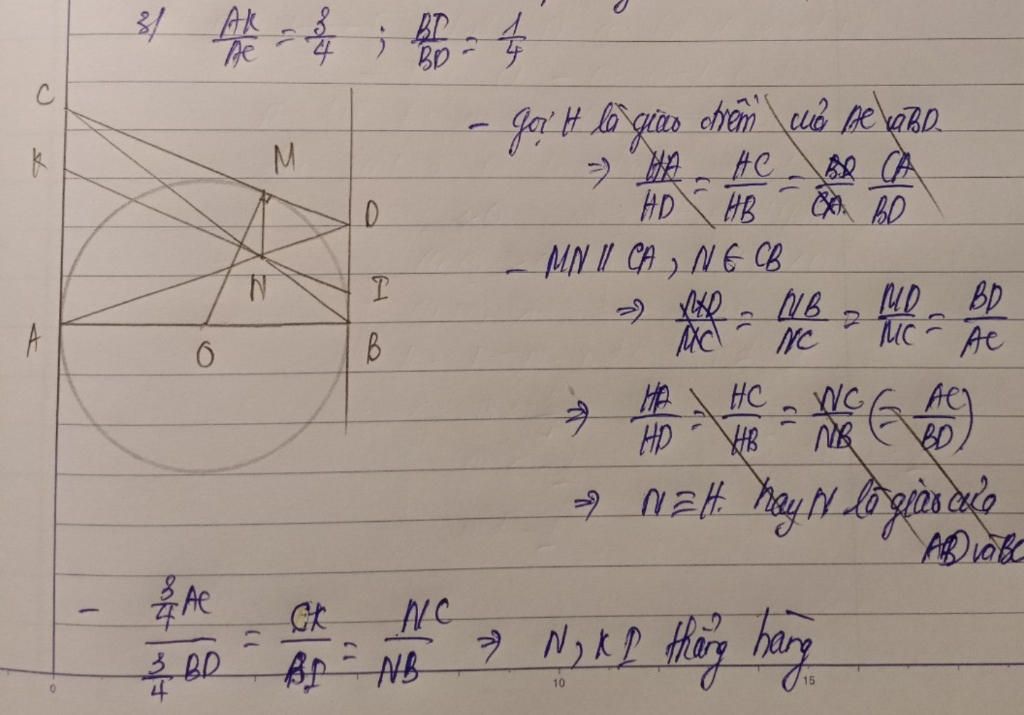 3/ AK/AC = 3/4 ; BI/BD = 1/4
C
K
M
D
N
I
A
O
B
- gọi H là giao điểm của AC và BD.
⇒ HA/HD = HC/HB = CA/BD
- MN // CA, N ∈ CB
⇒ MD/MC = NB/NC = MD/MC = BD/AC
⇒ HA/HD = HC/HB = NC/NB (= AC/BD)
⇒ N ≡ H. hay N là giao của
AD và BC
- 3/4 AC / 3/4 BD = CK/BI = NC/NB ⇒ N, K I thẳng hàng
0 10 15